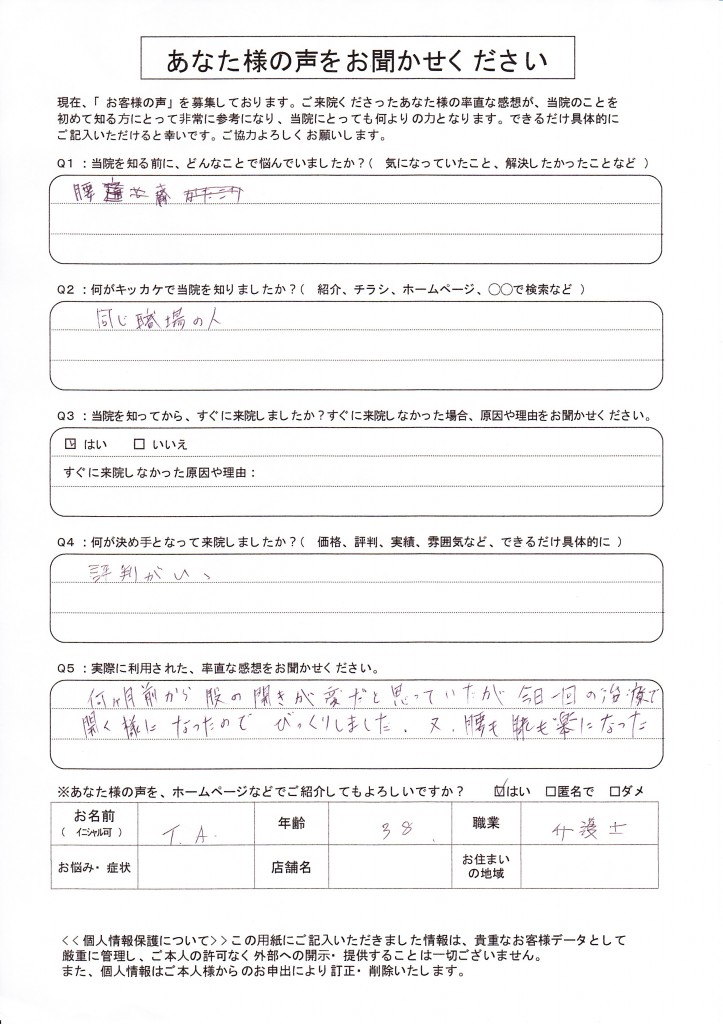 あなた様の声をお聞かせください
現在、「お客様の声」を募集しております。ご来院くださったあなた様の率直な感想が、当院のことを
初めて知る方にとって非常に参考になり、当院にとっても何よりの力となります。できるだけ具体的に
ご記入いただけると幸いです。ご協力よろしくお願いします。
Q1：当院を知る前に、どんなことで悩んでいましたか？（ 気になっていたこと、解決したかったことなど ）
腰
Q2：何がキッカケで当院を知りましたか？（ 紹介、チラシ、ホームページ、○○で検索など ）
同じ職場の人
Q3：当院を知ってから、すぐに来院しましたか？すぐに来院しなかった場合、原因や理由をお聞かせください。
☑ はい □ いいえ
すぐに来院しなかった原因や理由：
Q4：何が決め手となって来院しましたか？（ 価格、評判、実績、雰囲気など、できるだけ具体的に ）
評判がいい、
Q5：実際に利用された、率直な感想をお聞かせください。
何ヶ月前から股の開きが変だと思っていたが今日一回の治療で
開く様になったのでびっくりしました。又、腰も 楽になった
※あなた様の声を、ホームページなどでご紹介してもよろしいですか？ ☑はい □匿名で □ダメ
お名前（イニシャル可） T.A. 年齢 38. 職業 介護士
お悩み・症状 店舗名 お住まいの地域
<<個人情報保護について>>この用紙にご記入いただきました情報は、貴重なお客様データとして
厳重に管理し、ご本人の許可なく外部への開示・提供することは一切ございません。
また、個人情報はご本人様からのお申出により訂正・削除いたします。